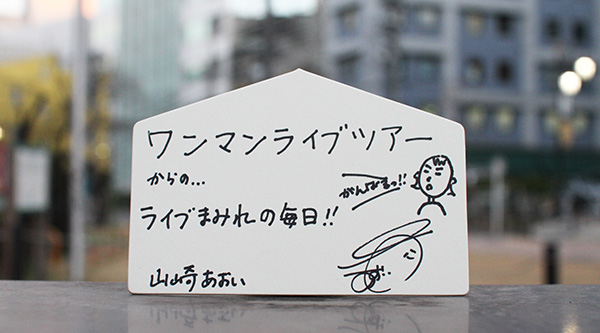 ワンマンライブツアー
からの...
がんばるっ!!
ライブまみれの毎日!!
山崎あおい